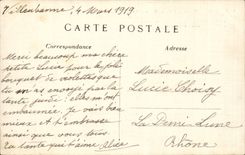 Villeurbanne, 4 Mars 1919
CARTE POSTALE
Correspondance
Adresse
Merci beaucoup ma chère
petite Lucie pour le joli
bouquet de violettes que
tu as envoyé par ta
tante
embaumée. Je vais bien
mieux et t'embrasse
ainsi que vous tous.
ta tante qui t'aime Alice
Mademoiselle
Lucie Choisy
La Demi-Lune
Rhône